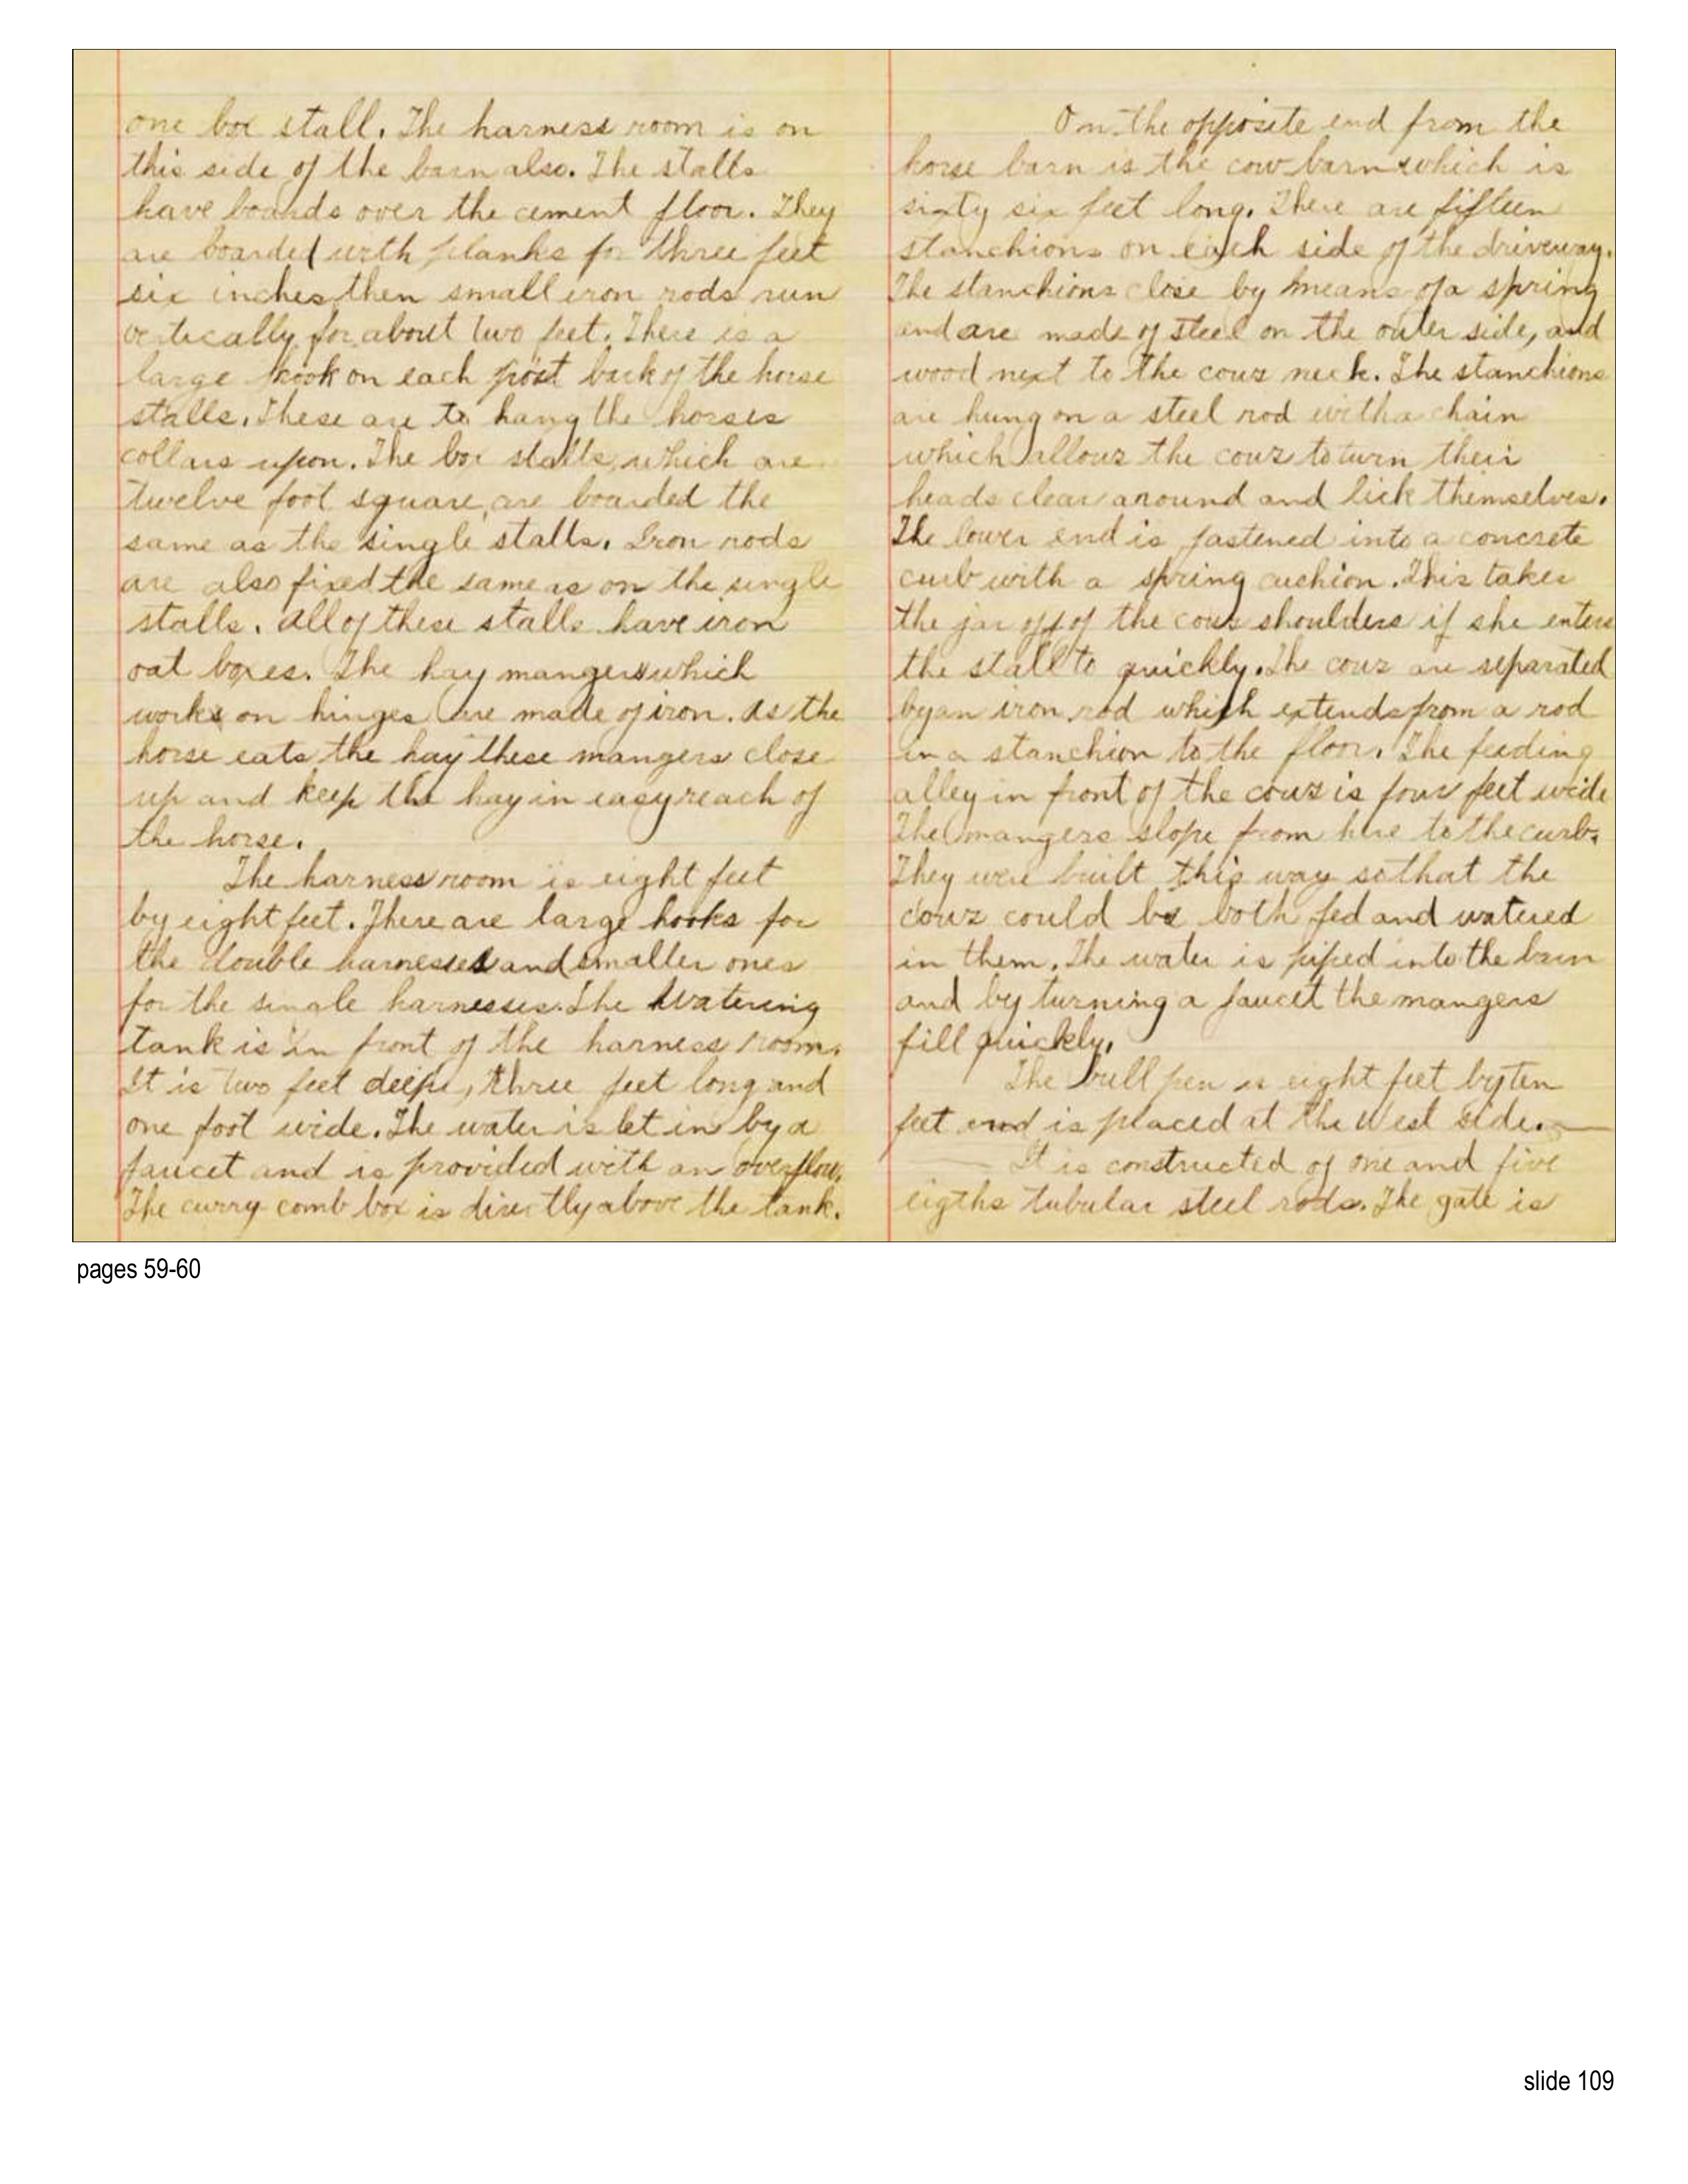 one box stall. The harness room is on
this side of the barn also. The stalls
have boards over the cement floor. They
are boarded with planks for three feet
six inches, then small iron rods run
vertically for about two feet. There is a
large hook on each post back of the horse
stalls. These are to hang the horses
collars upon. The box stalls, which are
twelve foot square, are boarded the
same as the single stalls. Iron rods
are also fixed the same as on the single
stalls. All of these stalls have iron
oat boxes. The hay mangers which
works on hinges are made of iron. As the
horse eats the hay these mangers close
up and keep the hay in easy reach of
the horse.
The harness room is eight feet
by eight feet. There are large hooks for
the double harnesses and smaller ones
for the single harnesses. The watering
tank is in front of the harness room.
It is two feet deep, three feet long and
one foot wide. The water is let in by a
faucet and is provided with an overflow.
The curry comb box is directly above the tank.
On the opposite end from the
horse barn is the cow barn which is
sixty six feet long. There are fifteen
stanchions on each side of the driveway.
The stanchions close by means of a spring
and are made of steel on the outer side, and
wood next to the cows neck. The stanchions
are hung on a steel rod with a chain
which allows the cows to turn their
heads clear around and lick themselves.
The lower end is fastened into a concrete
curb with a spring cuchion. This takes
the jar off of the cows shoulders if she enters
the stall to quickly. The cows are separated
by an iron rod which extends from a rod
in a stanchion to the floor. The feeding
alley in front of the cows is four feet wide
The mangers slope from here to the curb.
They were built this way so that the
cows could be both fed and watered
in them. The water is piped into the barn
and by turning a faucet the mangers
fill quickly.
The bull pen is eight feet by ten
feet and is placed at the west side.
It is constructed of one and five
eigths tubular steel rods. The gate is
pages 59-60
slide 109